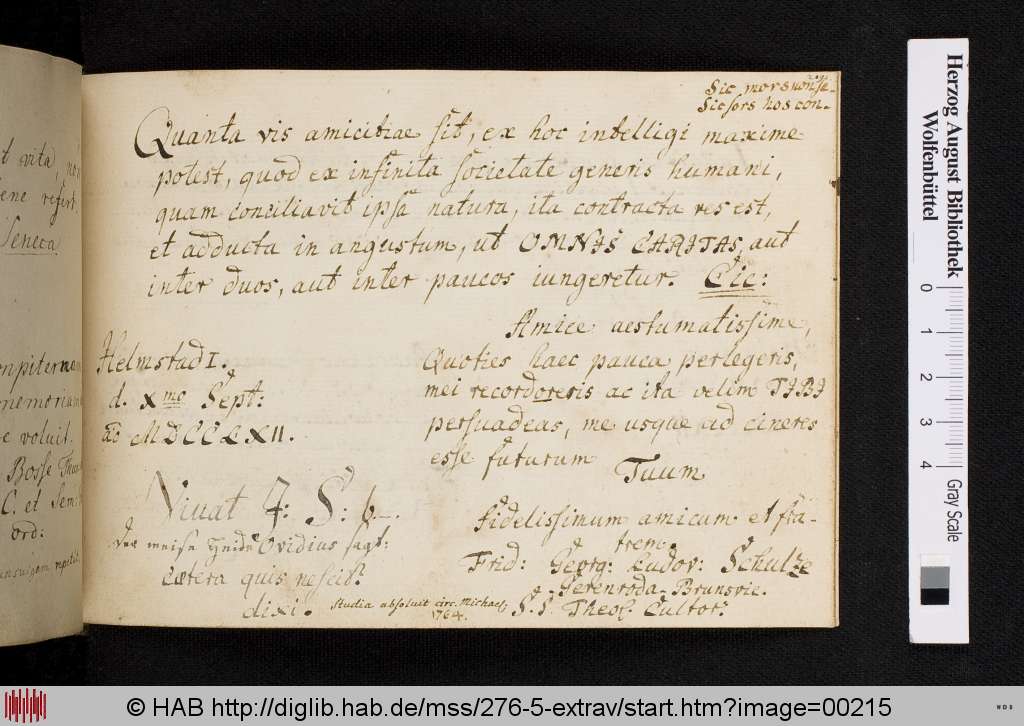 Sic mors non se-
Sic sors hos con-
Quanta vis amicitiae sit, ex hoc intelligi maxime
potest, quod ex infinita societate generis humani,
quam conciliavit ipsa natura, ita contracta res est,
et adducta in angustum, ut OMNIS CARITAS, aut
inter duos, aut inter paucos iungeretur. Cic:
Amice aestumatissime,
Quoties haec pauca perlegeris,
mei recordoreris ac ita velim TIBI
persuadeas, me usque ad cineres
esse futurum
Tuum
fidelissimum amicum et fra-
trem.
Frid: Georg: Ludov: Schulze
Gerenroda-Brunsvic.
S. S. Theol. Cultor.
Helmstad I.
d. Xmo Sept:
ao MDCCLXII.
Vivat 4: S: b.
Ovidius sagt:
Caetera quis nescit?
dixi.
Studia absolvit circ. Michael:
1764.
t vita
ene refert.
Seneca
mpiternam
memoriam
e voluit.
Bosse
C. et Sem:
ord:
Herzog August Bibliothek
Wolfenbüttel
0 1 2 3 4
Gray Scale
© HAB http://diglib.hab.de/mss/276-5-extrav/start.htm?image=00215